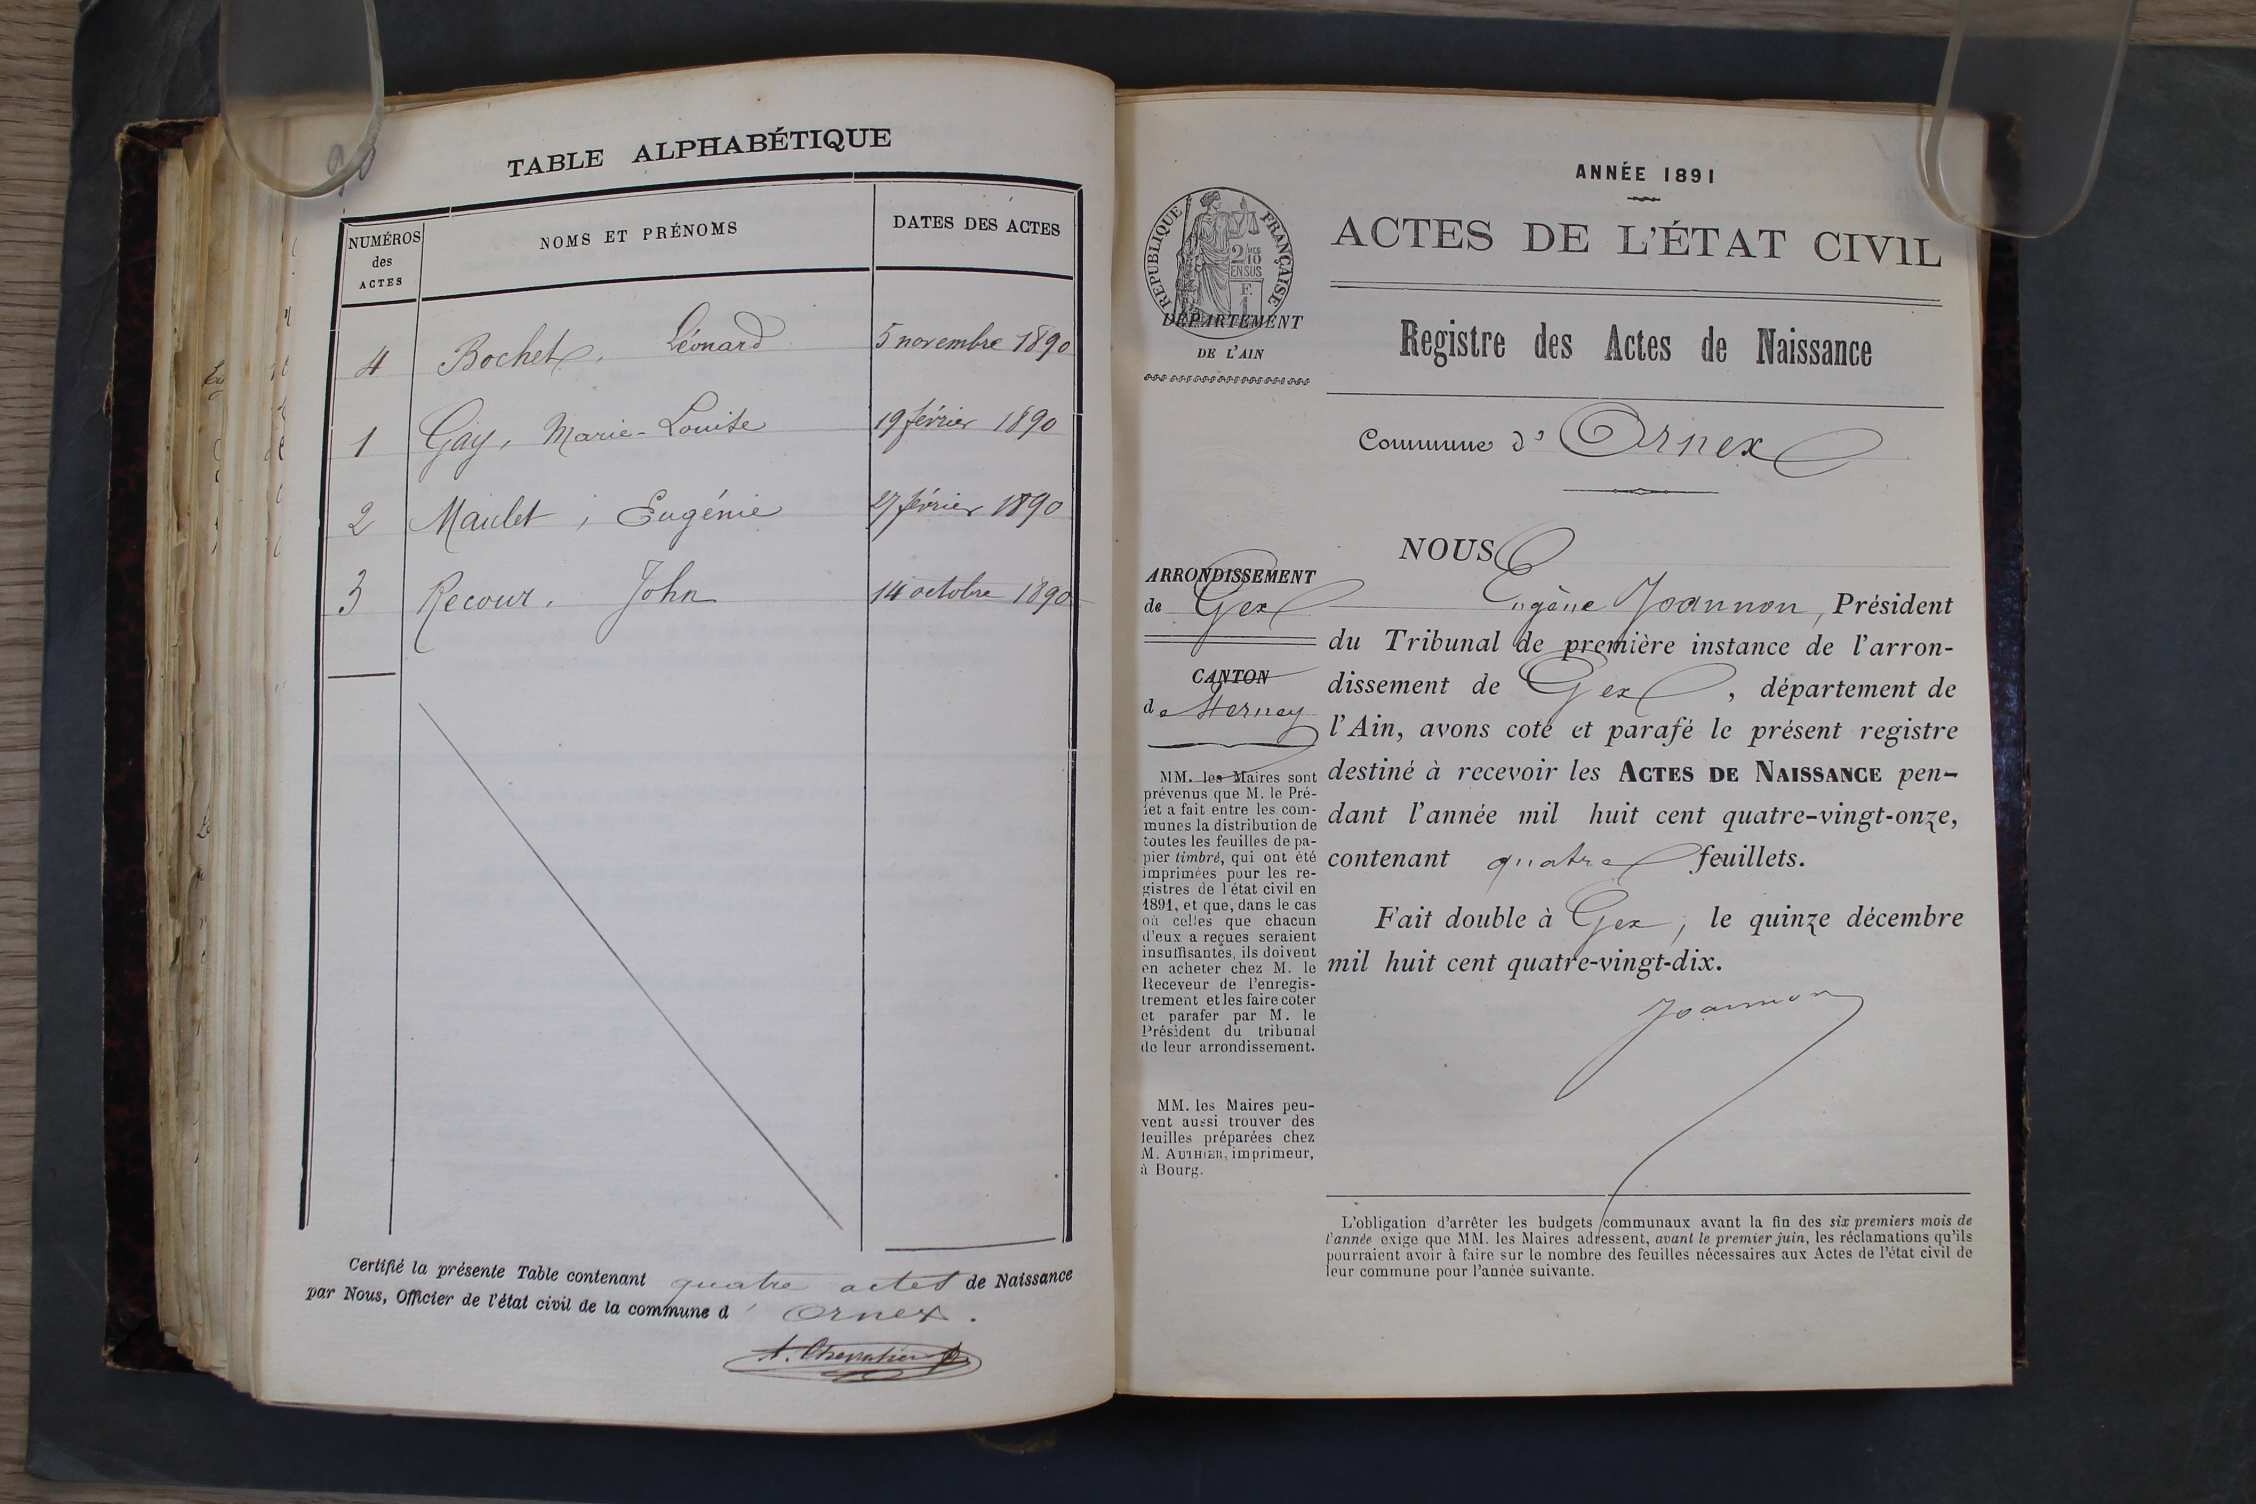 90
TABLE ALPHABÉTIQUE
NUMÉROS des ACTES NOMS ET PRÉNOMS DATES DES ACTES
4 Bochet, Léonard 5 novembre 1890
1 Gay, Marie-Louise 19 février 1890
2 Maulet, Eugénie 27 février 1890
3 Recour, John 14 octobre 1890
Certifié la présente Table contenant quatre actes de Naissance
par Nous, Officier de l'état civil de la commune d' Ornex.
A. Chevalier
ANNÉE 1891
ACTES DE L'ÉTAT CIVIL
RÉPUBLIQUE FRANÇAISE
2/10
EN SUS
F.
1
DÉPARTEMENT
DE L'AIN
Registre des Actes de Naissance
Commune d' Ornex
ARRONDISSEMENT
de Gex
CANTON
de Ferney
MM. les Maires sont
prévenus que M. le Pré-
fet a fait entre les com-
munes la distribution de
toutes les feuilles de pa-
pier timbré, qui ont été
imprimées pour les re-
gistres de l'état civil en
1891, et que, dans le cas
où celles que chacun
d'eux a reçues seraient
insuffisantes, ils doivent
en acheter chez M. le
Receveur de l'enregis-
trement et les faire coter
et parafer par M. le
Président du tribunal
de leur arrondissement.
MM. les Maires peu-
vent aussi trouver des
feuilles préparées chez
M. AUTHIER, imprimeur,
à Bourg.
NOUS
Eugène Joannon, Président
du Tribunal de première instance de l'arron-
dissement de Gex, département de
l'Ain, avons coté et parafé le présent registre
destiné à recevoir les ACTES DE NAISSANCE pen-
dant l'année mil huit cent quatre-vingt-onze,
contenant quatre feuillets.
Fait double à Gex, le quinze décembre
mil huit cent quatre-vingt-dix.
Joannon
L'obligation d'arrêter les budgets communaux avant la fin des six premiers mois de
l'année exige que MM. les Maires adressent, avant le premier juin, les réclamations qu'ils
pourraient avoir à faire sur le nombre des feuilles nécessaires aux Actes de l'état civil de
leur commune pour l'année suivante.